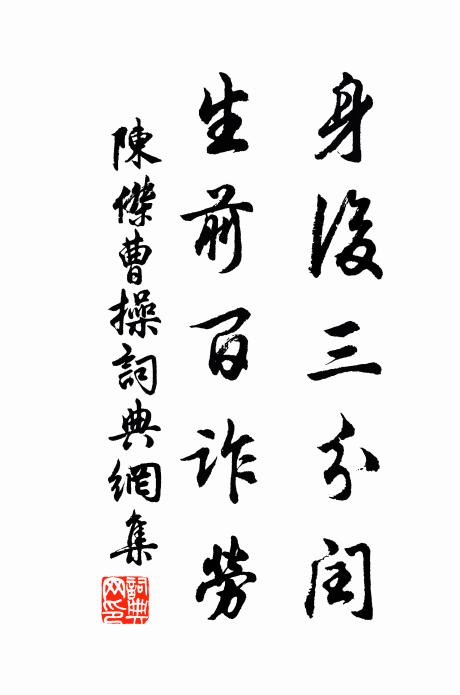 身後三分閏
生前百詐勞
陳傑曹操詞典網集
詞典网印